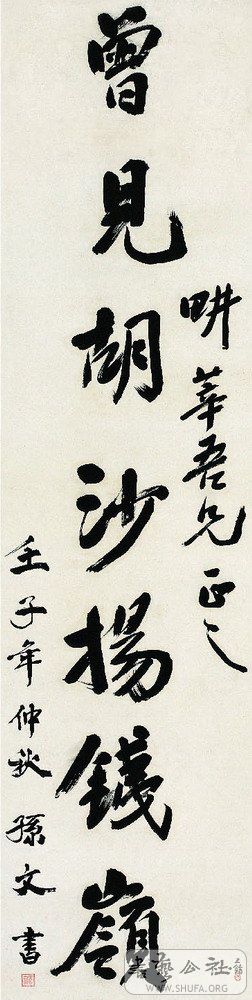 畊莘吾兄正之
曾見胡沙揚鐵嶺
壬子年仲秋 孫文書
書藝公社
WWW.SHUFA.ORG